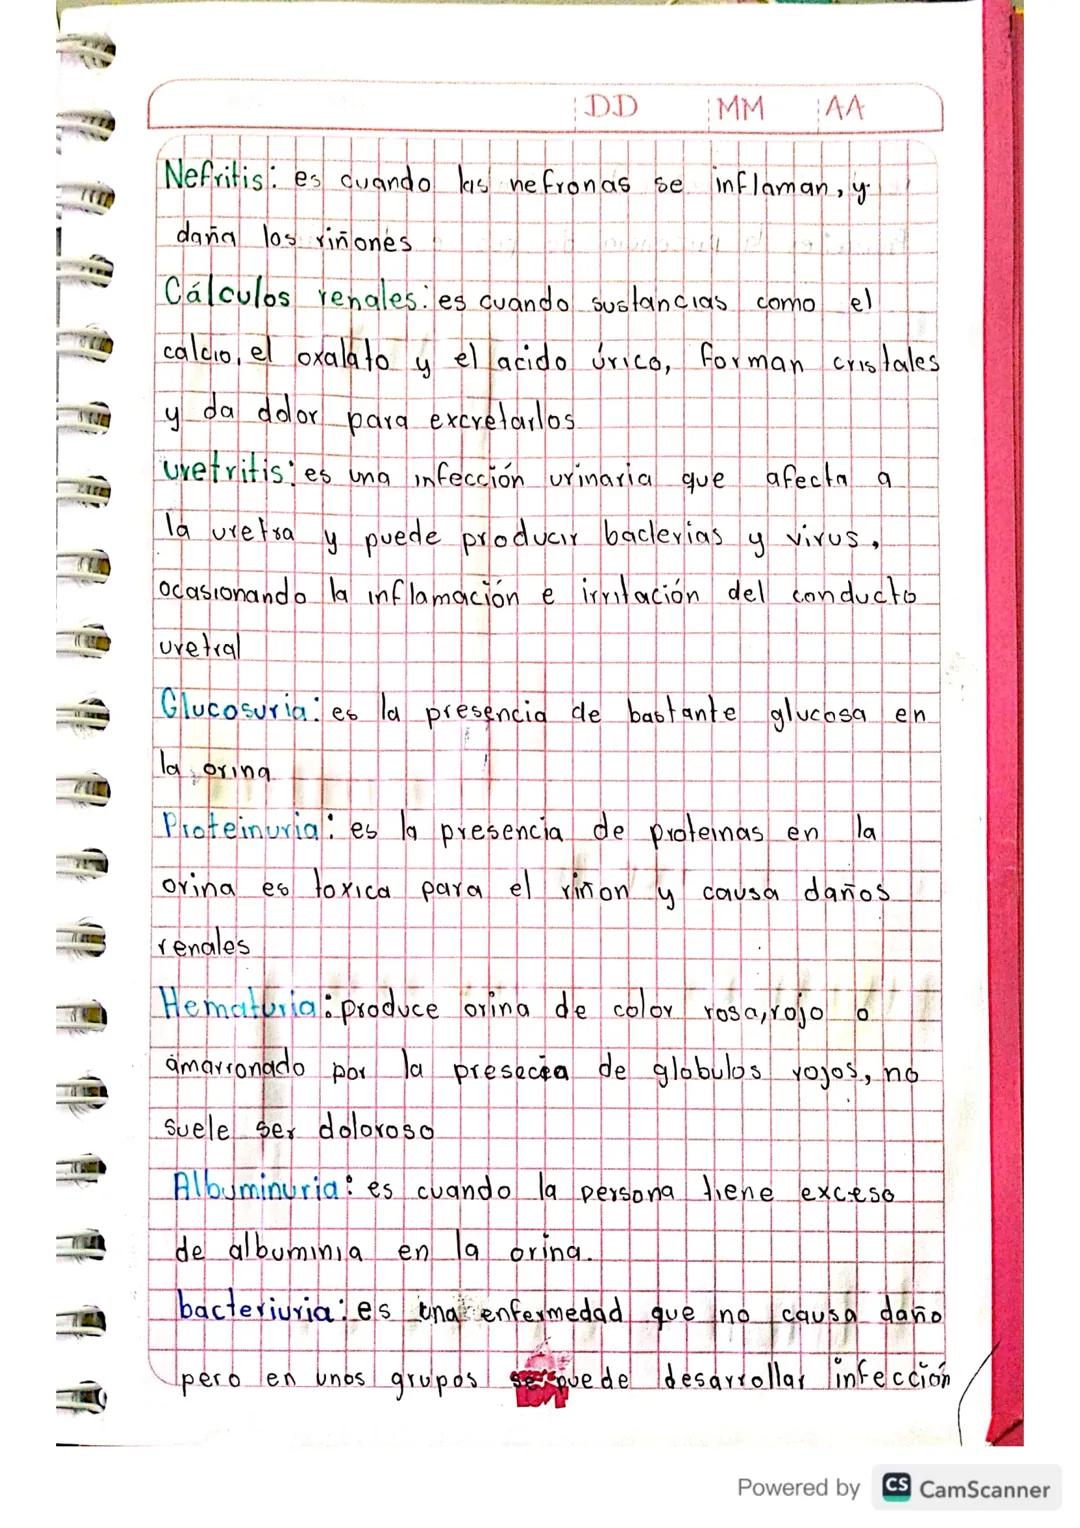 DD MM AA
Nefritis: es cuando las nefronas se inflaman, y
daña los riñones
Cálculos renales: es cuando sustancias como el
calcio, el oxalato y el acido úrico, forman cristales
y da dolor para excretarlos
uretritis: es una infección urinaria que afecta a
la uretra y puede producir bacterias y virus,
ocasionando la inflamación e irritación del conducto
uretral
Glucosuria: es la presencia de bastante glucosa en
la orina
Proteinuria: es la presencia de proteinas en la
orina es toxica para el riñon y causa daños
renales
Hematuria: produce orina de color rosa, rojo o
amarronado por la presecia de glóbulos rojos, no
suele ser doloroso
Albuminuria: es cuando la persona tiene exceso
de albuminia en la orina.
bacteriuria: es una enfermedad que no causa daño
pero en unos grupos se puede desarrollar infección
Powered by CS CamScanner